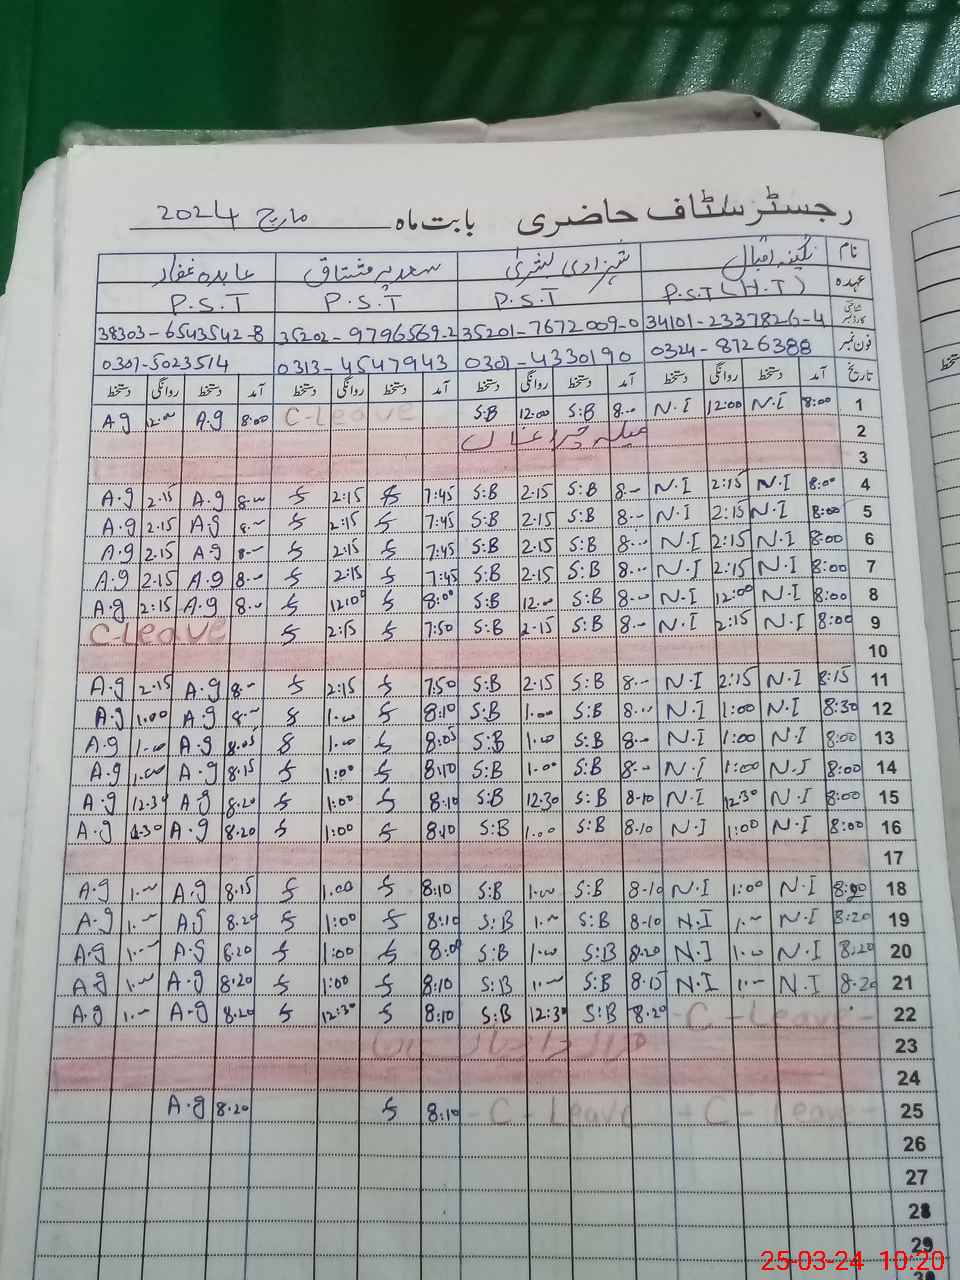 رجسٹر سٹاف حاضری بابت ماہ مارچ 2024
نام نگینہ اقبال شہزادی بشریٰ سعدیہ مشتاق عابدہ غفار
عہدہ P.S.T (H.T) P.S.T P.S.T P.S.T
شناختی کارڈ نمبر 34101-2337826-4 35201-7672009-0 35202-9796569-2 38303-6543542-8
فون نمبر 0324-8726388 0301-4330190 0313-4547943 0301-5023514
تاریخ آمد دستخط روانگی دستخط آمد دستخط روانگی دستخط آمد دستخط روانگی دستخط آمد دستخط روانگی دستخط
1 8:00 N.I 12:00 N.I 8.00 S:B 12:00 S:B C-Leave 8:00 A.g 12.00 A.g
2 میلہ چراغاں
3
4 8:00 N.I 2:15 N.I 8.00 S:B 2.15 S:B 7:45 2:15 8.00 A.g 2.15 A.g
5 8:00 N.I 2:15 N.I 8.00 S:B 2.15 S:B 7:45 2:15 8.00 A.g 2.15 A.g
6 8:00 N.I 2:15 N.I 8.00 S:B 2.15 S:B 7:45 2:15 8.00 A.g 2.15 A.g
7 8:00 N.I 2:15 N.I 8.00 S:B 2.15 S:B 7:45 2:15 8.00 A.g 2.15 A.g
8 8:00 N.I 12:00 N.I 8.00 S:B 12.00 S:B 8:00 12:00 8.00 A.g 2:15 A.g
9 8:00 N.I 2:15 N.I 8.00 S:B 2.15 S:B 7:50 2:15 C-Leave
10
11 8:15 N.I 2:15 N.I 8.00 S:B 2.15 S:B 7:50 2:15 8.00 A.g 2.15 A.g
12 8:30 N.I 1:00 N.I 8.00 S:B 1.00 S:B 8:10 1.00 8.00 A.g 1.00 A.g
13 8:00 N.I 1:00 N.I 8.00 S:B 1.00 S:B 8:05 1.00 8.05 A.g 1.00 A.g
14 8:00 N.I 1:00 N.I 8.00 S:B 1.00 S:B 8:10 1:00 8.15 A.g 1.00 A.g
15 8:00 N.I 12:30 N.I 8-10 S:B 12.30 S:B 8:10 1:00 8.20 A.g 12.30 A.g
16 8:00 N.I 1:00 N.I 8.10 S:B 1.00 S:B 8:10 1:00 8.20 A.g A.g
17
18 N.I 1:00 N.I 8-10 S:B 1.00 S:B 8:10 1.00 8.15 A.g 1.00 A.g
19 8:20 N.I 1.00 N.I 8-10 S:B 1.00 S:B 8:10 1:00 8.20 A.g 1.00 A.g
20 8:20 N.I 1.00 N.I 8.20 S:B 1.00 S:B 1:00 8.20 A.g 1.00 A.g
21 8.20 N.I 1.00 N.I 8.15 S:B 1.00 S:B 8:10 1:00 8.20 A.g 1.00 A.g
22 -C-Leave- 8.20 S:B 12:30 S:B 8:10 12:30 8.20 A.g 1.00 A.g
23
24
25 -C-Leave- -C-Leave- 8:10 8.20 A.g
26
27
28
29
25-03-24 10:20